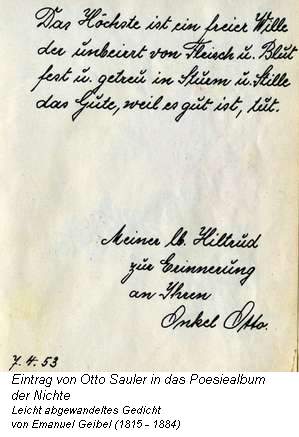 Das Höchste ist ein freier Wille
der unbeirrt von Fleisch u. Blut
fest u. getreu in Sturm u. Stille
das Gute, weil es gut ist, tut.
Meiner lb. Hiltrud
zur Erinnerung
an Ihren
Onkel Otto.
7.4.53
Eintrag von Otto Sauler in das Poesiealbum
der Nichte
Leicht abgewandeltes Gedicht
von Emanuel Geibel (1815 - 1884)